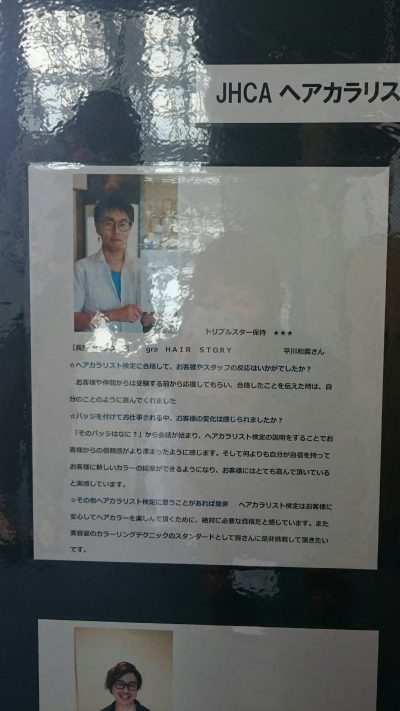 JHCA ヘアカラリス
トリプルスター保持 ★★★
gra HAIR STORY 平川和義さん
☆ヘアカラリスト検定に合格して、お客様やスタッフの反応はいかがでしたか？
お客様や仲間からは受験する前から応援してもらい、合格したことを伝えた時は、自
分のことのように喜んでくれました
☆バッジを付けてお仕事される中、お客様の変化は感じられましたか？
「そのバッジはなに？」から会話が始まり、ヘアカラリスト検定の説明をすることでお
客様からの信頼感がより深まったように感じます。そして何よりも自分が自信を持って
お客様に新しいカラーの提案ができるようになり、お客様にはとても喜んで頂いている
と実感しています。
☆その他ヘアカラリスト検定に思うことがあれば是非 ヘアカラリスト検定はお客様に
安心してヘアカラーを楽しんで頂くために、絶対に必要な資格だと感じています。また
美容室のカラーリングテクニックのスタンダードとして皆さんに是非挑戦して頂きたい
です。